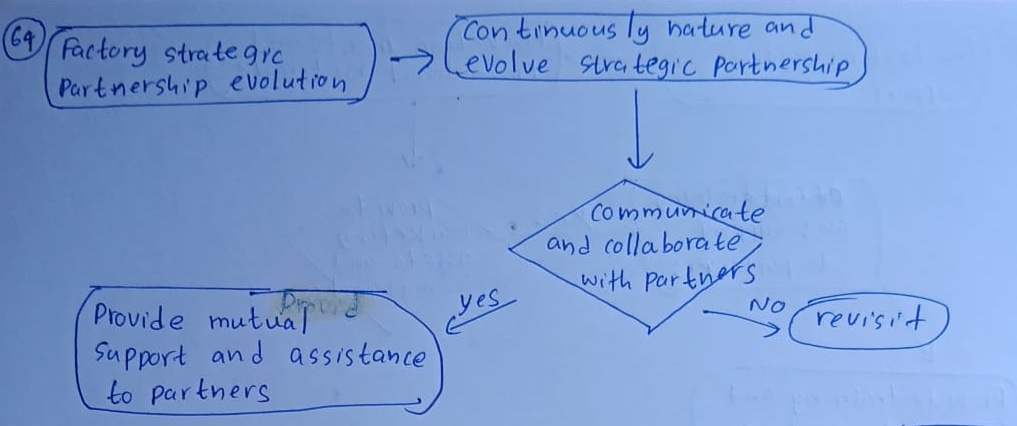 64
Factory strategic
Partnership evolution
Continuously nature and
evolve strategic partnership
Communicate
and collaborate
with partners
yes
No
revisit
Provide mutual
Support and assistance
to partners